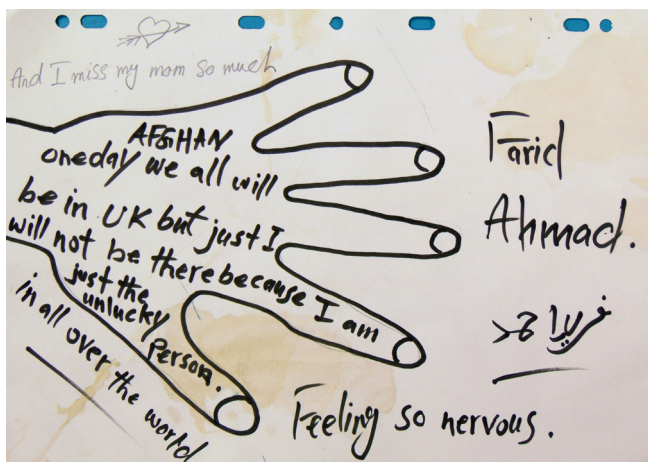 And I miss my mom so much
AFGHAN
oneday we all will
be in UK but just I
will not be there because I am
just the
unlucky
person.
in all over the world
Farid
Ahmad.
Feeling so nervous.